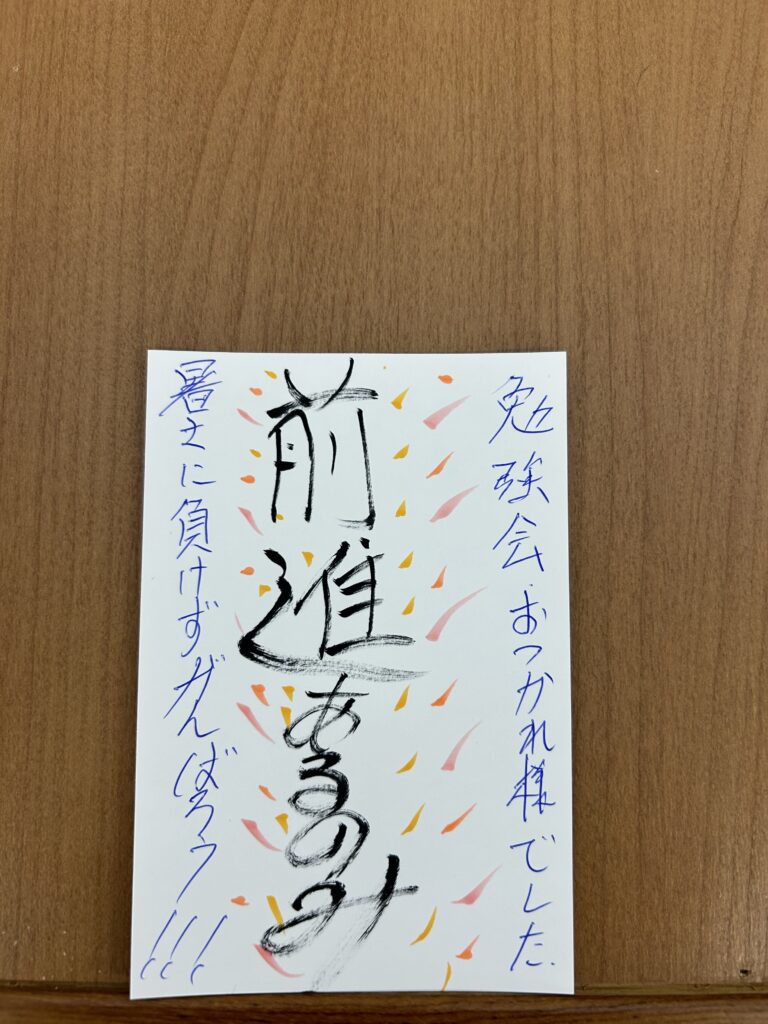 勉強会.おつかれ様でした.
前進あるのみ
暑さに負けずがんばろう!!!